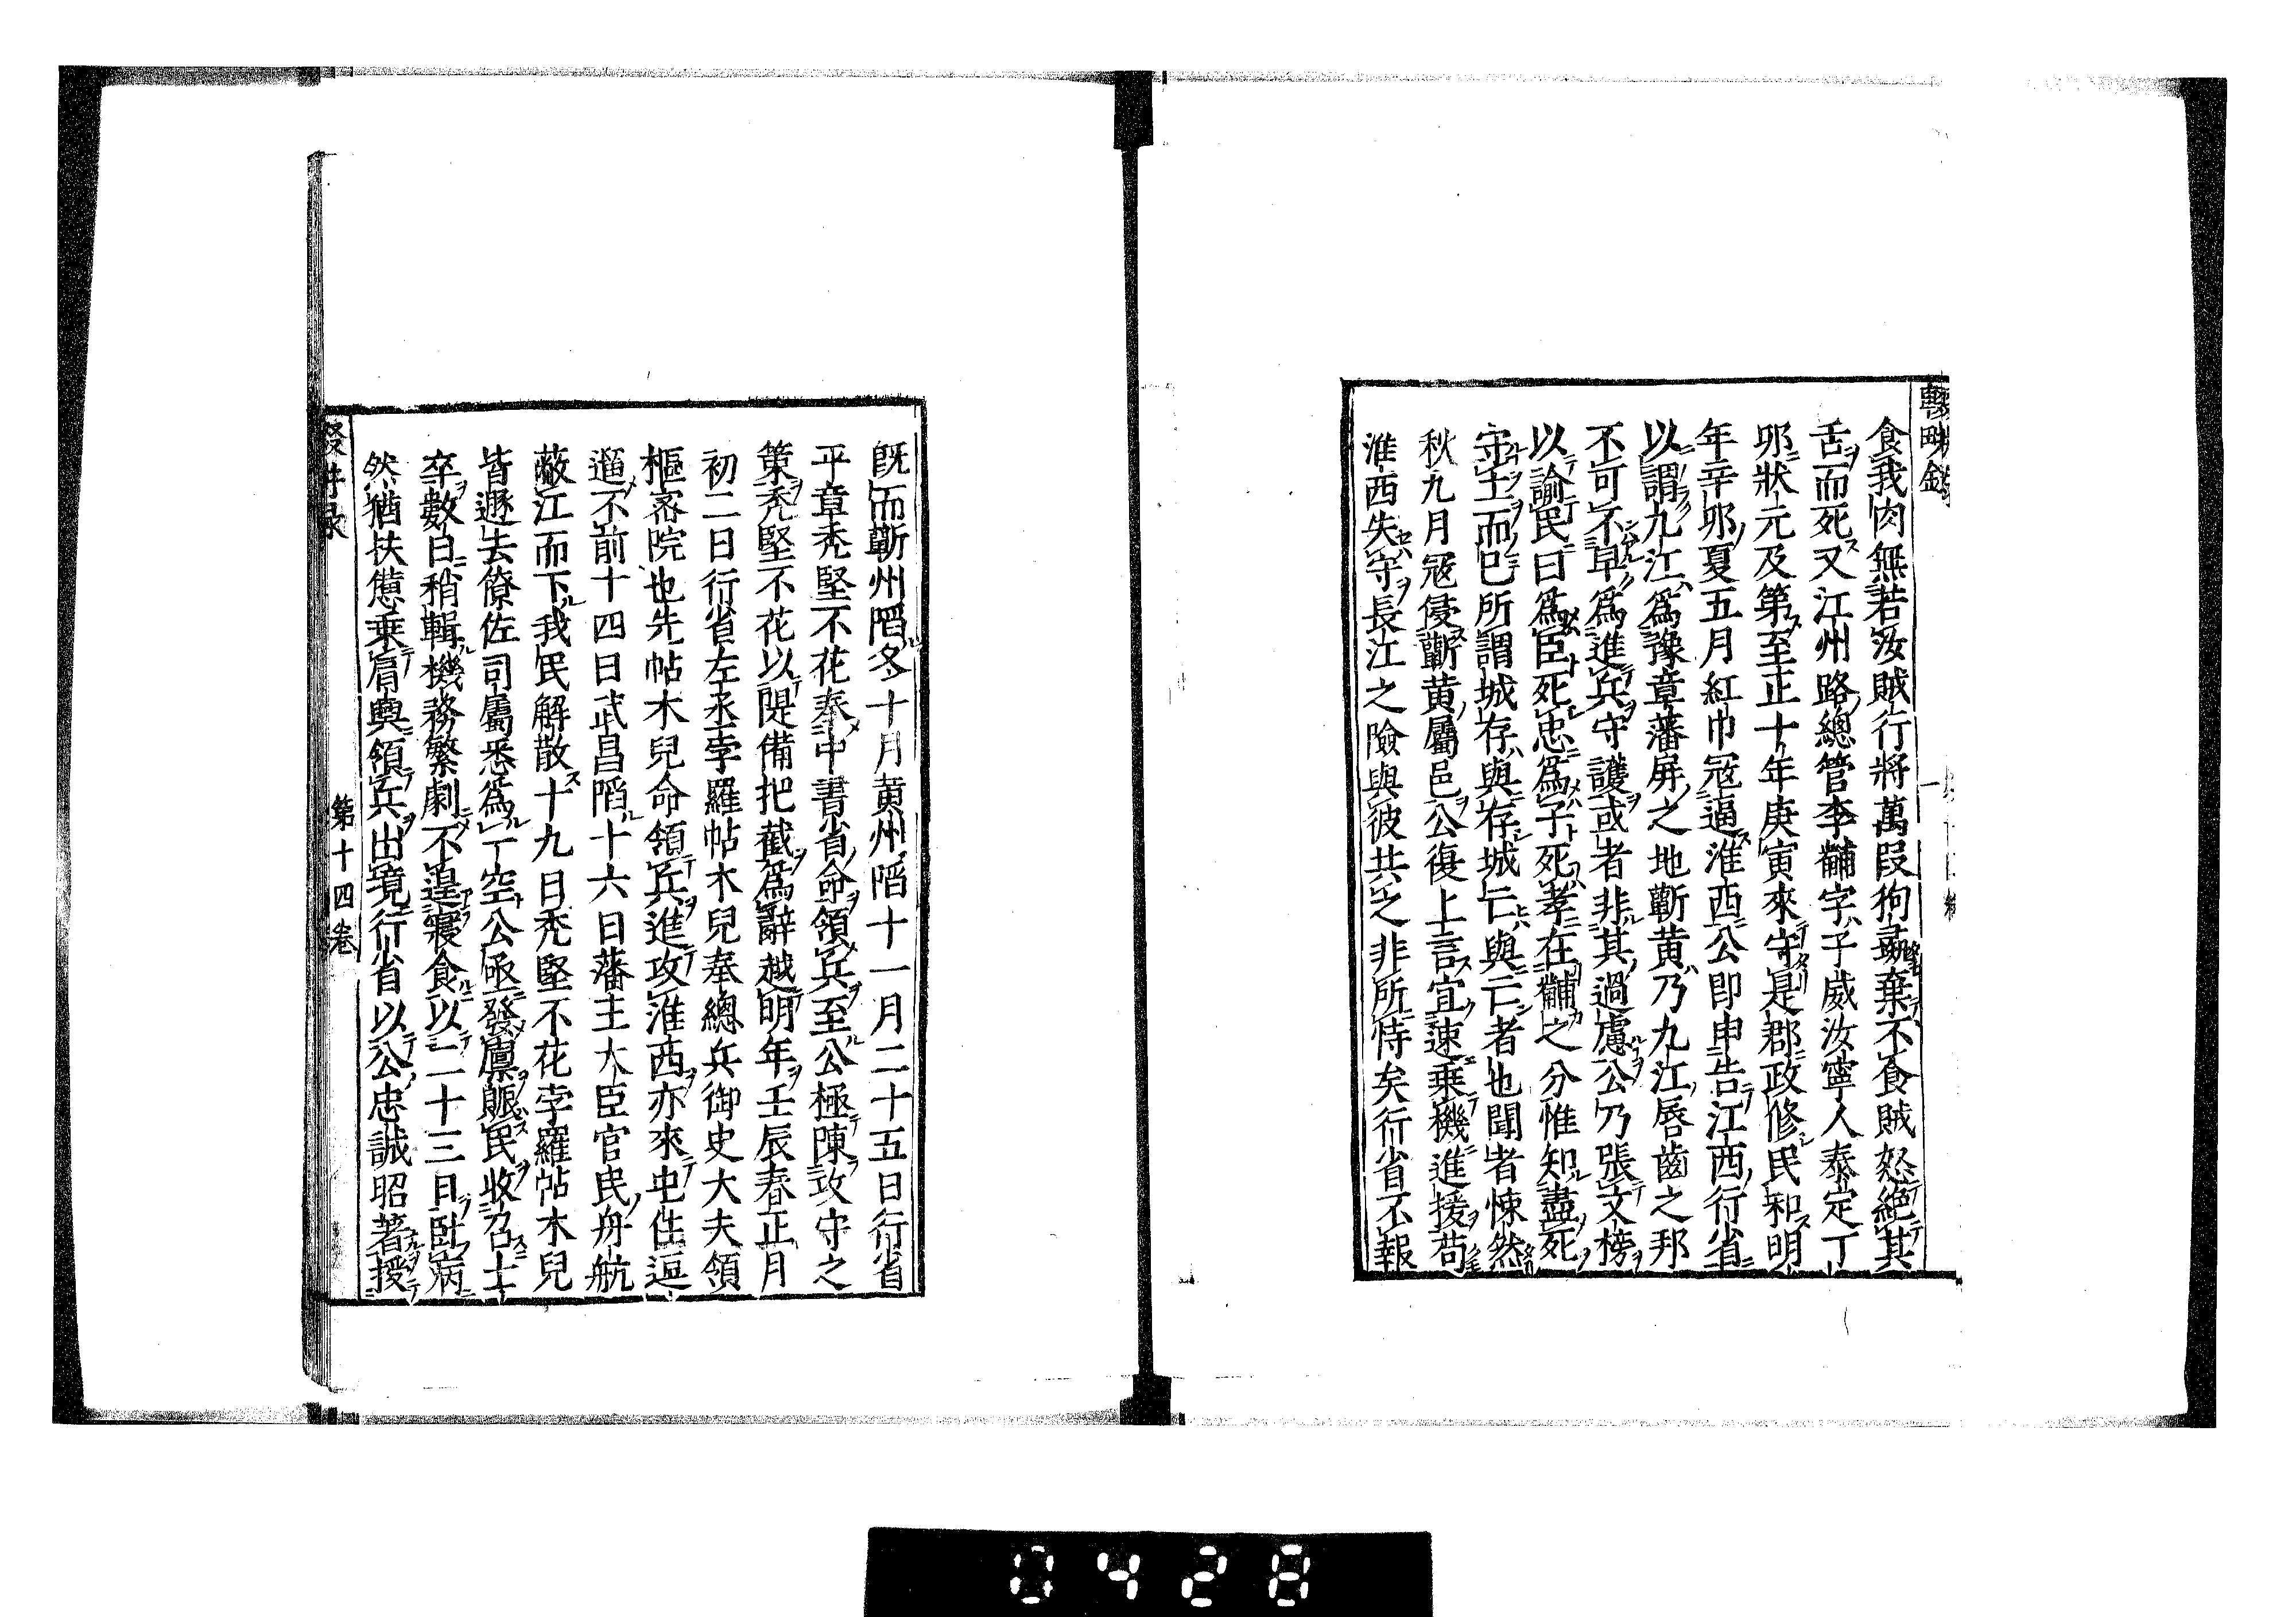 輟畊錄
食我肉無若汝賊行將萬段狗彘棄不食賊怒絶其
舌而死又江州路總管李黼字子威汝寧人泰定丁
夘狀元及第至正十年庚寅來守是郡政修民和明
年辛夘夏五月紅巾冦逼淮西公即申告江西行省
以謂九江爲豫章藩屏之地蘄黄乃九江唇齒之邦
不可不早爲進兵守護或者非其過慮公乃張文榜
以諭民曰爲臣死忠爲子死孝在黼之分惟知盡死
守土而已所謂城存與存城亡與亡者也聞者悚然
秋九月冦侵蘄黄屬邑公復上言宜速乗機進援苟
淮西失守長江之險與彼共之非所恃矣行省不報
既而蘄州䧟冬十月黄州䧟十一月二十五日行省
平章禿堅不花奉中書省命領兵至公極陳攻守之
策禿堅不花以隄備把截爲辭越明年壬辰春正月
初二日行省左丞孛羅帖木兒奉總兵御史大夫領
樞宻院也先帖木兒命領兵進攻淮西亦來屯住逗
遛不前十四日武昌䧟十六日藩主大臣官民舟航
蔽江而下我民解散十九日禿堅不花孛羅帖木兒
皆遯去僚佐司屬悉爲一空公亟發廪賑民收召士
卒數日稍輯機務繁劇不遑寢食以二十三日臥病
然猶扶憊乗肩輿領兵出境行省以公忠誠昭著授
輟畊录
第十四卷
0428